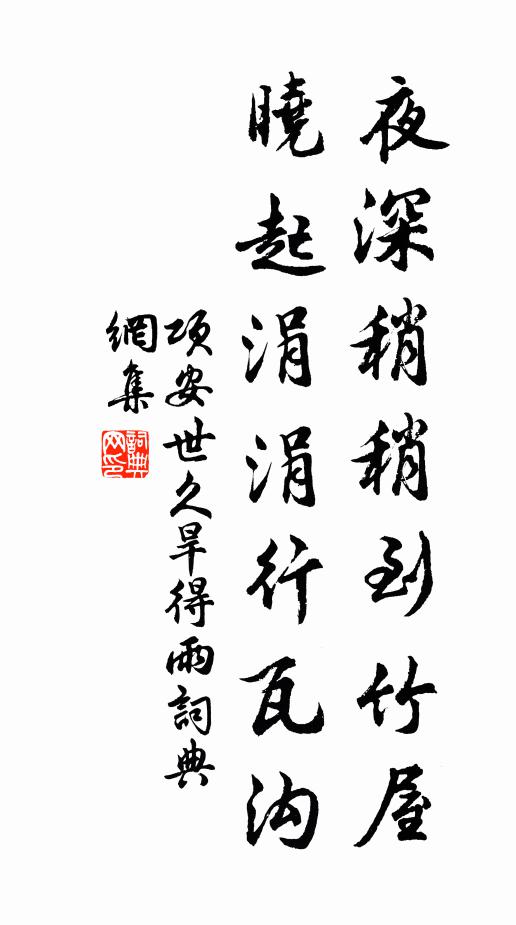 夜深稍稍到竹屋
曉起涓涓行瓦沟
项安世久旱得雨詞典
網集
詞典網印